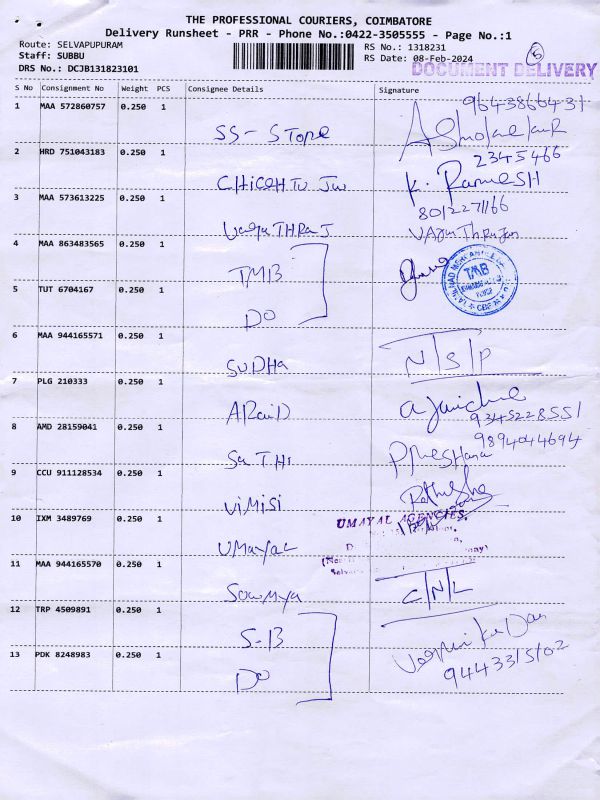 THE PROFESSIONAL COURIERS, COIMBATORE
Delivery Runsheet - PRR - Phone No.:0422-3505555 - Page No.:1
Route: SELVAPUPURAM
Staff: SUBBU
DRS No.: DCJB131823101
RS No.: 1318231
RS Date: 08-Feb-2024
5
DOCUMENT DELIVERY
S No Consignment No Weight PCS Consignee Details Signature
1 MAA 572860757 0.250 1 SS-STORE
2 HRD 751043183 0.250 1 2345466
K. RAMESH
3 MAA 573613225 0.250 1
4 MAA 863483565 0.250 1 TMB
TMB
5 TUT 6704167 0.250 1 DO
6 MAA 944165571 0.250 1 SUDHA N/S/P
7 PLG 210333 0.250 1
8 AMD 28159041 0.250 1 SaTHi
9894044694
9 CCU 911128534 0.250 1 ViMiSi
10 IXM 3489769 0.250 1 UMayaL
UMAYAL AGENCIES
11 MAA 944165570 0.250 1 SowMya C/N/L
12 TRP 4509891 0.250 1 S-IB
13 PDK 8248983 0.250 1 DO
9443315102